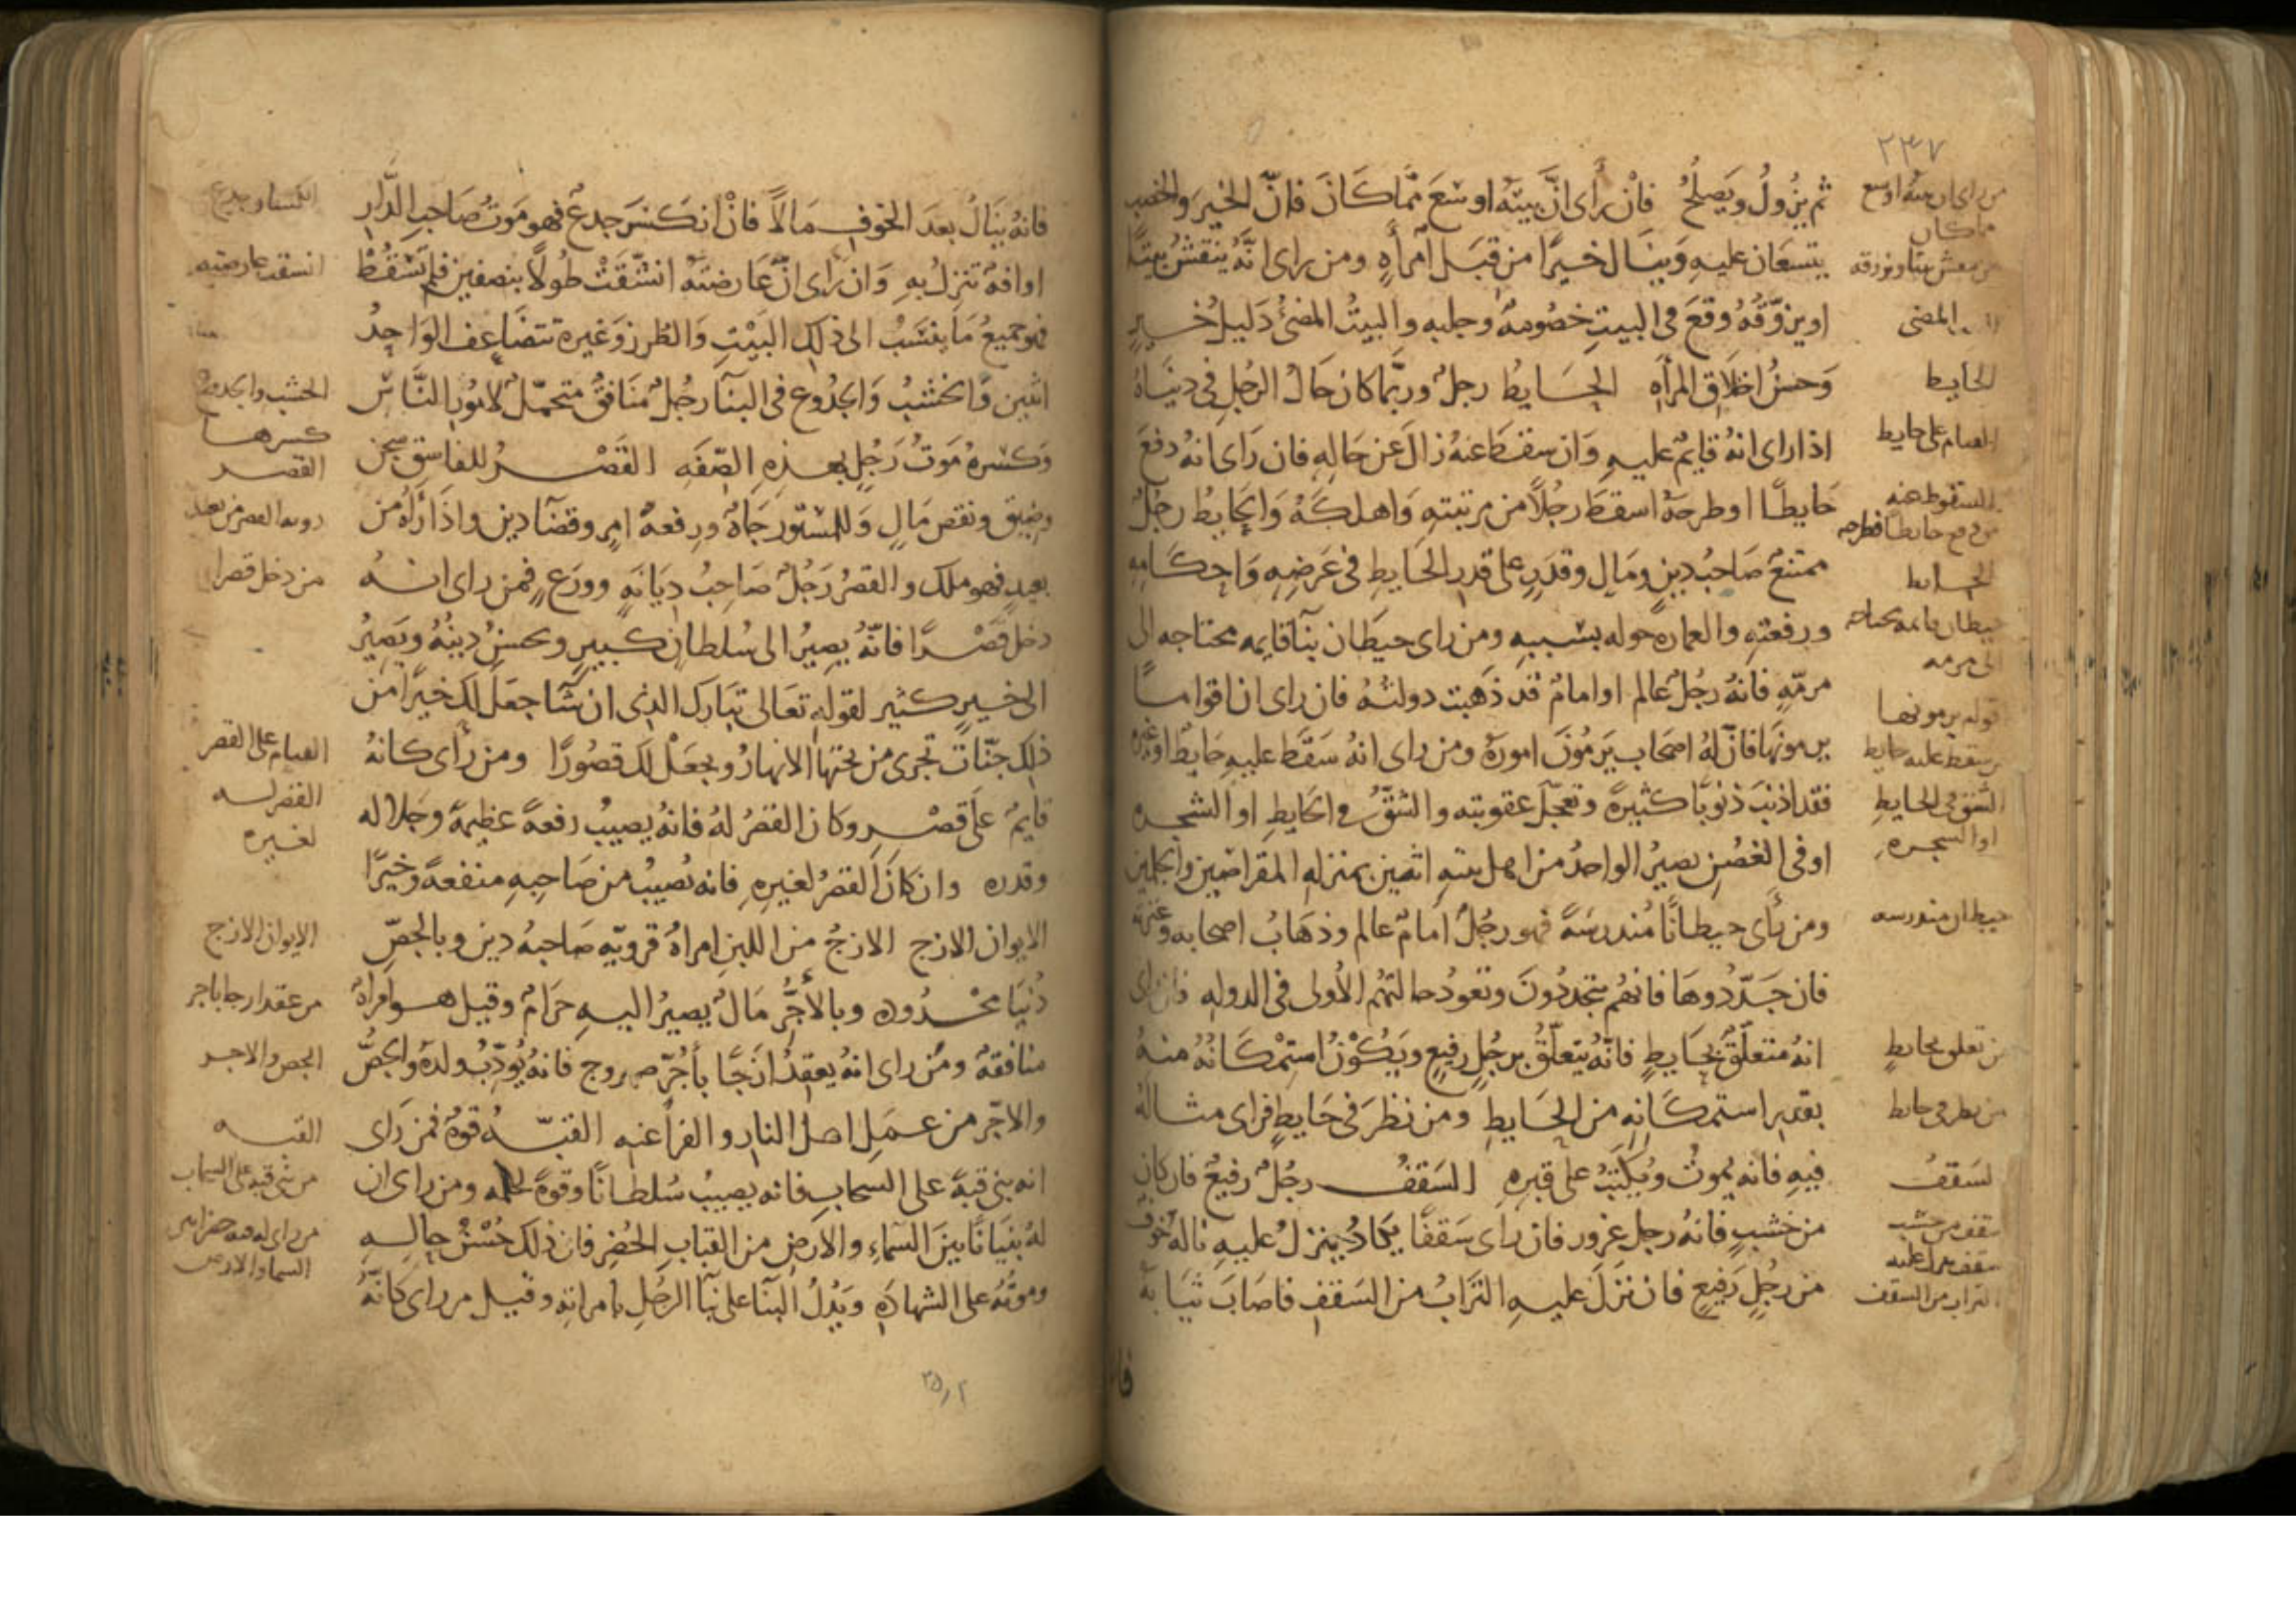 ٢٣٧
ثم يزول ويصلح فان رأى ان بيته اوسع مما كان فان الخير والخصب
يتسعان عليه وينال خيرا من قبل امرأه ومن رأى انه ينقش بيتا
او يزوقه وقع في البيت خصومه وجلبه والبيت المضئ دليل خير
وحسن اخلاق المرأه الحايط رجل وربما كان حال الرجل في دنياه
اذا راى انه قايم عليه وان سقط عنه زال عن حاله فان راى انه دفع
حايطا او طرحه اسقط رجلا من مرتبته واهلكه والحايط رجل
ممتنع صاحب دين ومال وقدر على قدر الحايط في عرضه واحكامه
ورفعته والعماره حوله بسببه ومن راى حيطان بنا قايمه محتاجه الى
مرمه فانه رجل عالم او امام قد ذهبت دولته فان راى ان اقواما
يرمونها فان له اصحاب يرمون اموره ومن راى انه سقط عليه حايط او غيره
فقد اذنب ذنوبا كثيرة وتعجل عقوبته والشق في الحايط او الشجره
او في الغصن يصير الواحد من اهل بيته اثنين بمنزله المقراضين والجلمين
ومن رأى حيطانا مندرسه فهو رجل امام عالم وذهاب اصحابه وعترته
فان جددوها فانهم يتجددون وتعود حالتهم الأولى في الدوله فان راى
انه متعلق بحايط فانه يتعلق برجل رفيع ويكون استمكانه منه
بقدر استمكانه من الحايط ومن نظر في حايط فراى مثاله
فيه فانه يموت ويكتب على قبره السقف رجل رفيع فان كان
من خشب فانه رجل غرور فان راى سقفا يكاد ينزل عليه ناله خوف
من رجل رفيع فان نزل عليه التراب من السقف فاصاب ثيابه
من راى ان بيته اوسع
مما كان
المضى
الحايط
القيام على حايط
السقوط عنه
الحايط
حيطان قايمه محتاجه
الى مرمه
الشق في الحايط
او الشجره
حيطان مندرسه
من تعلق بحايط
من نظر في حايط
السقف
سقف من خشب
التراب من السقف
فانه ينال بعد الخوف مالا فان انكسر جدع فهو موت صاحب الدار
او افه تنزل به وان راى ان عارضته انشقت طولا بنصفين فلم تسقط
فهو جميع ما ينسب الى ذلك البيت والطرز وغيره تتضاعف الواحد
اثنين والخشب والجدوع في البنا رجل منافق متحمل لامور الناس
وكسره موت رجل بهذه الصفه القصر للفاسق سجن
وضيق ونقص مال وللمستور جاه ورفعه امر وقضا دين واذا رآه من
بعيد فهو ملك والقصر رجل صاحب ديانه وورع فمن راى انه
دخل قصرا فانه يصير الى سلطان كبير ويحسن دينه ويصير
الى خير كثير لقوله تعالى تبارك الذي ان شا جعل لك خيرا من
ذلك جنات تجرى من تحتها الانهار ويجعل لك قصورا ومن رأى كانه
قايم على قصر وكان القصر له فانه يصيب رفعة عظيمة وجلاله
وقدره وان كان القصر لغيره فانه يصيب من صاحبه منفعة وخيرا
الايوان الازج الازج من اللبن امراة قرويه صاحبه دين وبالجص
دنيا محدوده وبالأجر مال يصير اليه حرام وقيل هو امراه
منافقه ومن راى انه يعقد ازجا بأجر صهروج فانه يؤدب ولده والجص
والاجر من عمل اهل النار والفراعنه القبه قوة فمن رأى
انه بنى قبة على السحاب فانه يصيب سلطانا وقوة لحلمه ومن راى ان
له بنيانا بين السماء والارض من القباب الخضر فان ذلك حسن حاله
وموته على الشهاده ويدل البنا على بنا الرجل بامراته وقيل من راى كانه
انكسار جدع
انشقت عارضته
الخشب والجدوع
كسرها
القصر
روية القصر من بعد
من دخل قصرا
القيام على القصر
القصر له
لغيره
الايوان الازج
من عقد ازجا باجر
الجص والاجر
القبه
من بنى قبه على السحاب
السما والارض